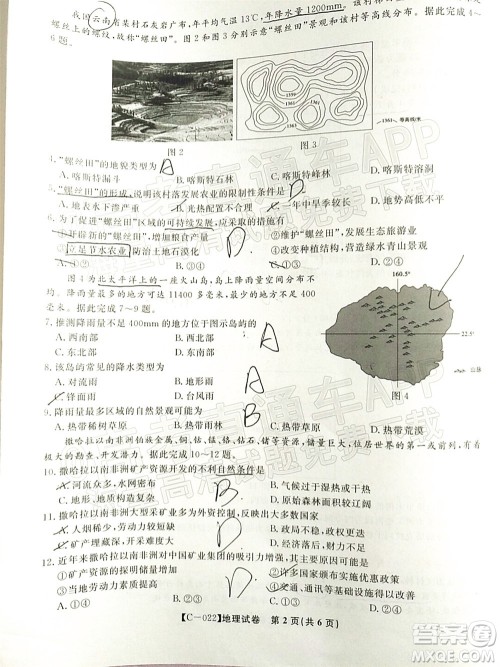 我国云南省某村石灰岩广布，年平均气温13℃，年降水量1200mm。该村
丝上的螺纹，故称为“螺丝田”。图2和图3分别示意“螺丝田”景观和等高线分布。据此完成4～
6题。
1359
1361
1361
1361 等高线/米
图2
图3
4.“螺丝田”的地貌类型为
A.喀斯特漏斗 B.喀斯特石林 C.喀斯特峰林 D.喀斯特溶洞
5.“螺丝田”的形成，说明该村落发展农业的限制性条件是
A.地表水下渗严重 B.光热配置不合理 C.一年中旱季较长 D.地势高低不平
6.为促进“螺丝田”区域的可持续发展，应
①开辟新的“螺丝田”，增加粮食产量 ②维护、发展生态旅游业
③立足节水农业，防治土地石漠化 ④改变种植结构，营造绿水青山景观
A.①② B.①③ C.③④ D.②③
图4为北太平洋上的一座火山岛，岛上降雨量空间分布不
均，降雨量最多的地方可达11400多毫米，最少的地方不足200
毫米。据此完成7～9题。
160.5°
22.5°
山脉
图4
7.推测降雨量不足400mm的地方位于图示岛屿的
A.西南部 B.西北部
C.东北部 D.东南部
8.该岛常见的降水类型为
A.对流雨 B.地形雨
C.锋面雨 D.台风雨
9.降雨量最多区域的自然景观可能为
A.热带稀树草原 B.热带雨林 C.热带草原 D.热带荒漠
撒哈拉以南非洲黄金、铂族金属、铜、钴、铬、锆、铁、钛、铀、钽、铯等资源，储量巨大，储量多居世界前列，具有
极为重要的地位。据此完成10～12题。
10.撒哈拉以南非洲矿产资源开发的不利自然条件是
A.河流众多，水网密布 B.高温多雨，生态脆弱
C.地形、地质构造复杂 D.耕地面积广，土壤肥沃
11.撒哈拉以南非洲大型采矿业多为外资企业，原因是该地大多数国家
A.人烟稀少，劳动力短缺 B.政局不稳，国力衰弱
C.矿产埋藏深，开采难度大 D.经济落后，财力有限
12.近年来撒哈拉以南非洲对中国矿业集团的吸引力增强，其主要原因是
①矿产资源的探明储量增加 ②许多国家颁布实施了优惠政策
③当地劳动力素质提高 ④基础设施不断完善
A.①② B.①③ C.③④ D.②④
【C—022】地理试卷 第2页（共6页）
A
D
D
A
A
B
B
D
D
直通车APP
作业帮